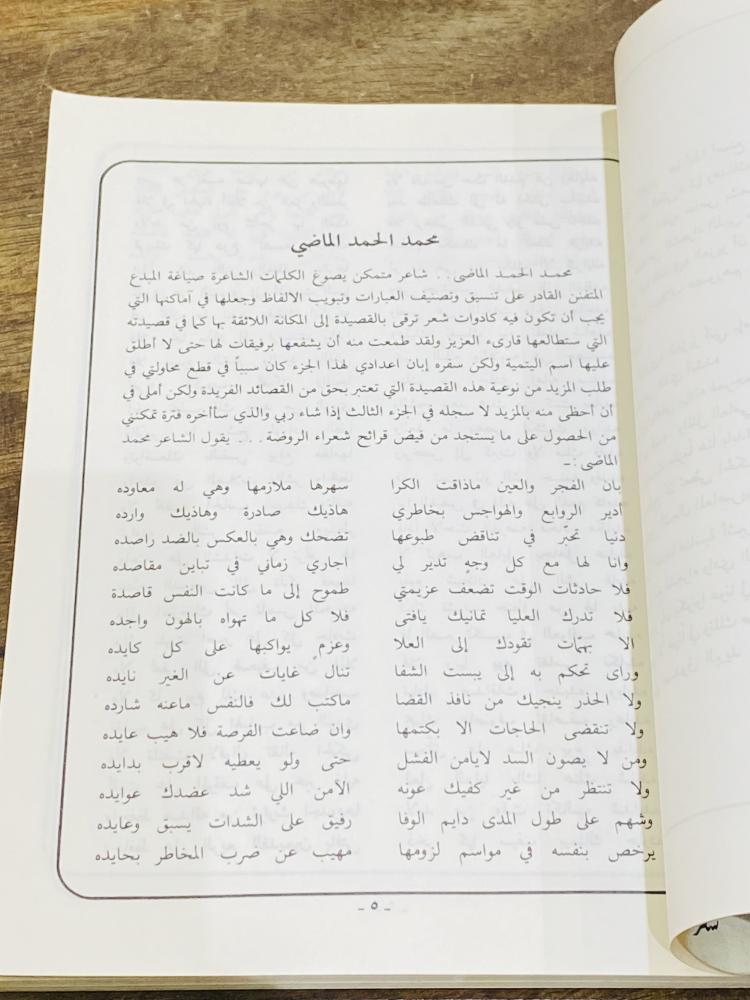 محمد الحمد الماضي
محمد الحمد الماضي . . شاعر متمكن يصوغ الكلمات الشاعرة صياغة المبدع
المتفنن القادر على تنسيق وتصنيف العبارات وتبويب الالفاظ وجعلها في أماكنها التي
يجب أن تكون فيه كادوات شعر ترقى بالقصيدة إلى المكانة اللائقة بها كما في قصيدته
التي ستطالعها قارىء العزيز ولقد طمعت منه أن يشفعها برفيقات لها حتى لا أطلق
عليها اسم اليتمية ولكن سفره إبان اعدادي لهذا الجزء كان سبباً في قطع محاولتي في
طلب المزيد من نوعية هذه القصيدة التي تعتبر بحق من القصائد الفريدة ولكن أملى في
أن أحظى منه بالمزيد لا سجله في الجزء الثالث إذا شاء ربي والذي سأأخره فترة تمكنني
من الحصول على ما يستجد من فيض قرائح شعراء الروضة . . . يقول الشاعر محمد
الماضى :ـ
بان الفجر والعين ماذاقت الكرا سهرها ملازمها وهي له معاوده
أدير الروابع والهواجس بخاطري هاذيك صادرة وهاذيك وارده
دنيا تحيّر في تناقض طبوعها تضحك وهي بالعكس بالضد راصده
وانا لها مع كل وجهٍ تدير لي اجاري زماني في تباين مقاصده
فلا حادثات الوقت تضعف عزيمتي طموح إلى ما كانت النفس قاصدة
فلا تدرك العليا تمانيك يافتى فلا كل ما تهواه بالهون واجده
الا بهمّات تقودك إلى العلا وعزمٍ يواكبها على كل كايده
وراى تحكم به إلى يبست الشفا تنال غايات عن الغير نايده
ولا الحذر ينجيك من نافذ القضا ماكتب لك فالنفس ماعنه شارده
ولا تنقضى الحاجات الا بكتمها وان ضاعت الفرصة فلا هيب عايده
ومن لا يصون السد لايامن الفشل حتى ولو يعطيه لاقرب بدايده
ولا تنتظر من غير كفيك عونه الأمن اللي شد عضدك عوايده
وشهم على طول المدى دايم الوفا رفيق على الشدات يسبق وعايده
يرخص بنفسه في مواسم لزومها مهيب عن ضرب المخاطر بحايده
ـ ٥ ـ